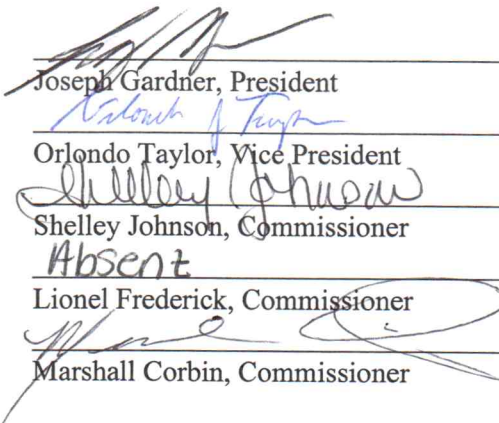 Joseph Gardner, President
Orlondo J Taylor
Orlondo Taylor, Vice President
Shelley Johnson
Shelley Johnson, Commissioner
Absent
Lionel Frederick, Commissioner
Marshall Corbin, Commissioner